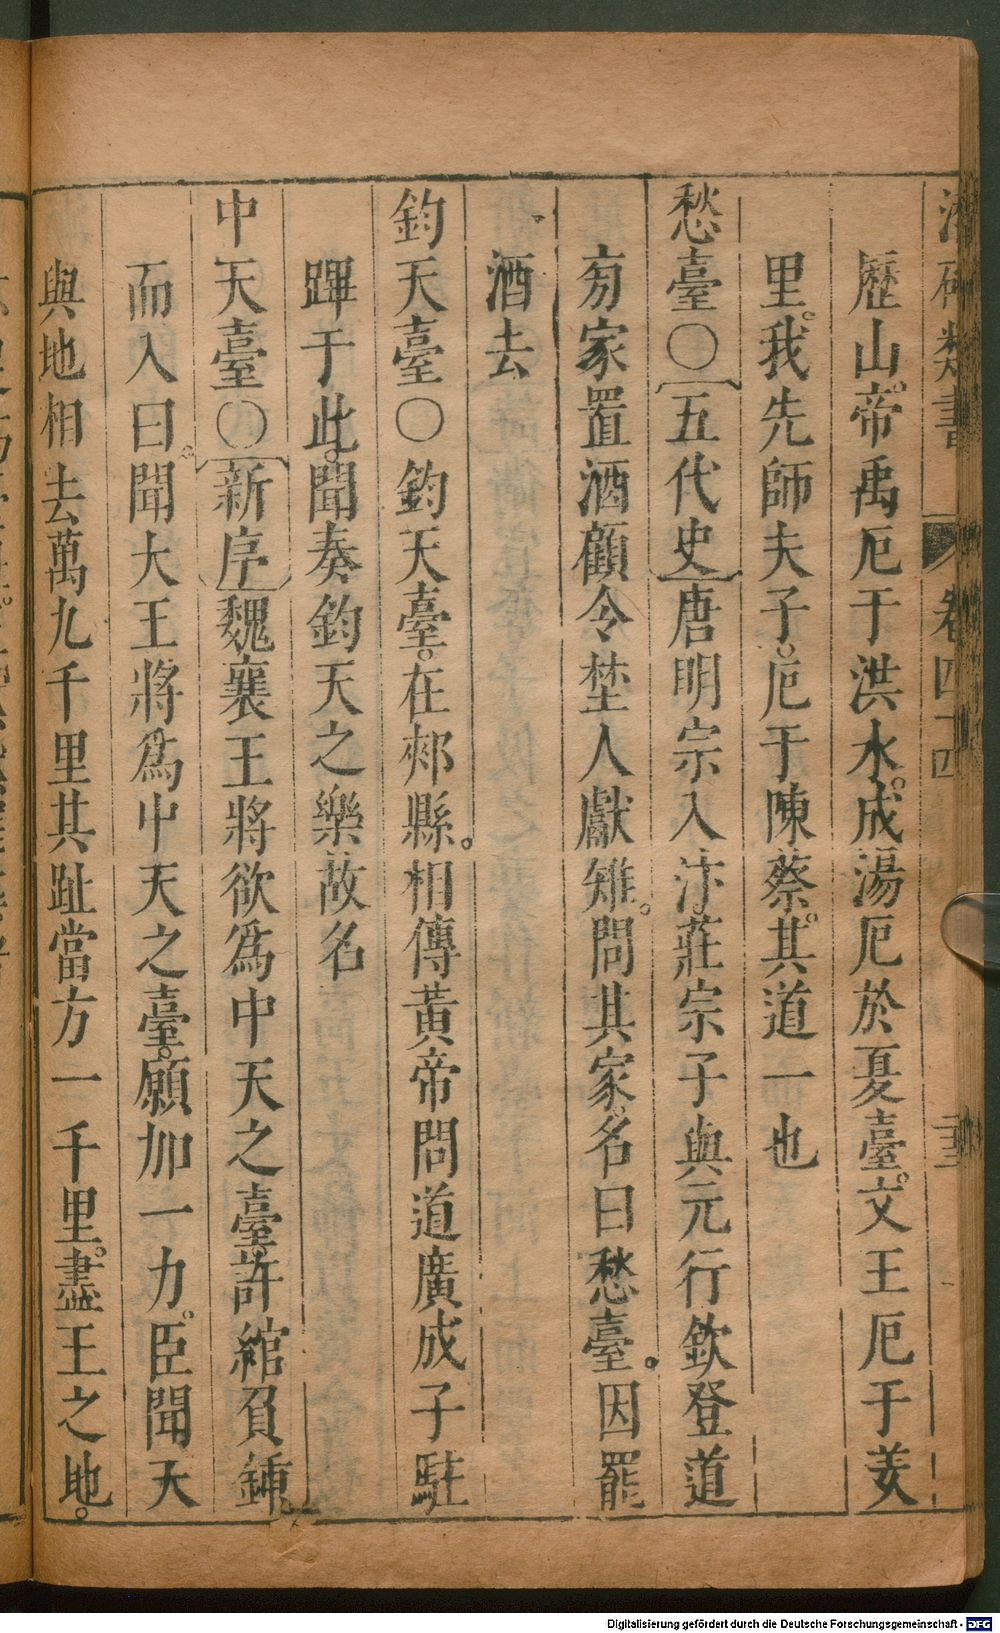 類書 卷四十四
歷山。帝禹厄于洪水。成湯厄於夏臺。文王厄于羑
里。我先師夫子。厄于陳蔡。其道一也
愁臺○〔五代史〕唐明宗入汴。莊宗子與元行欽登道
旁冢置酒顧令埜人獻雉。問其冢。名曰愁臺。因罷
酒去
鈞天臺○鈞天臺。在郟縣。相傳黃帝問道廣成子駐
蹕于此。聞奏鈞天之樂故名
中天臺○〔新序〕魏襄王將欲爲中天之臺許綰負鍤
而入曰。聞大王將爲中天之臺。願加一力。臣聞天
與地相去萬九千里其趾當方一千里。盡王之地。
Digitalisierung gefördert durch die Deutsche Forschungsgemeinschaft - DFG